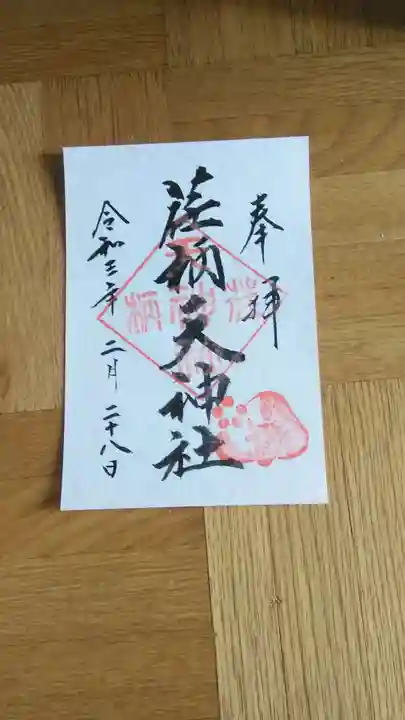 奉拝
荏柄天神社
令和三年二月二十八日